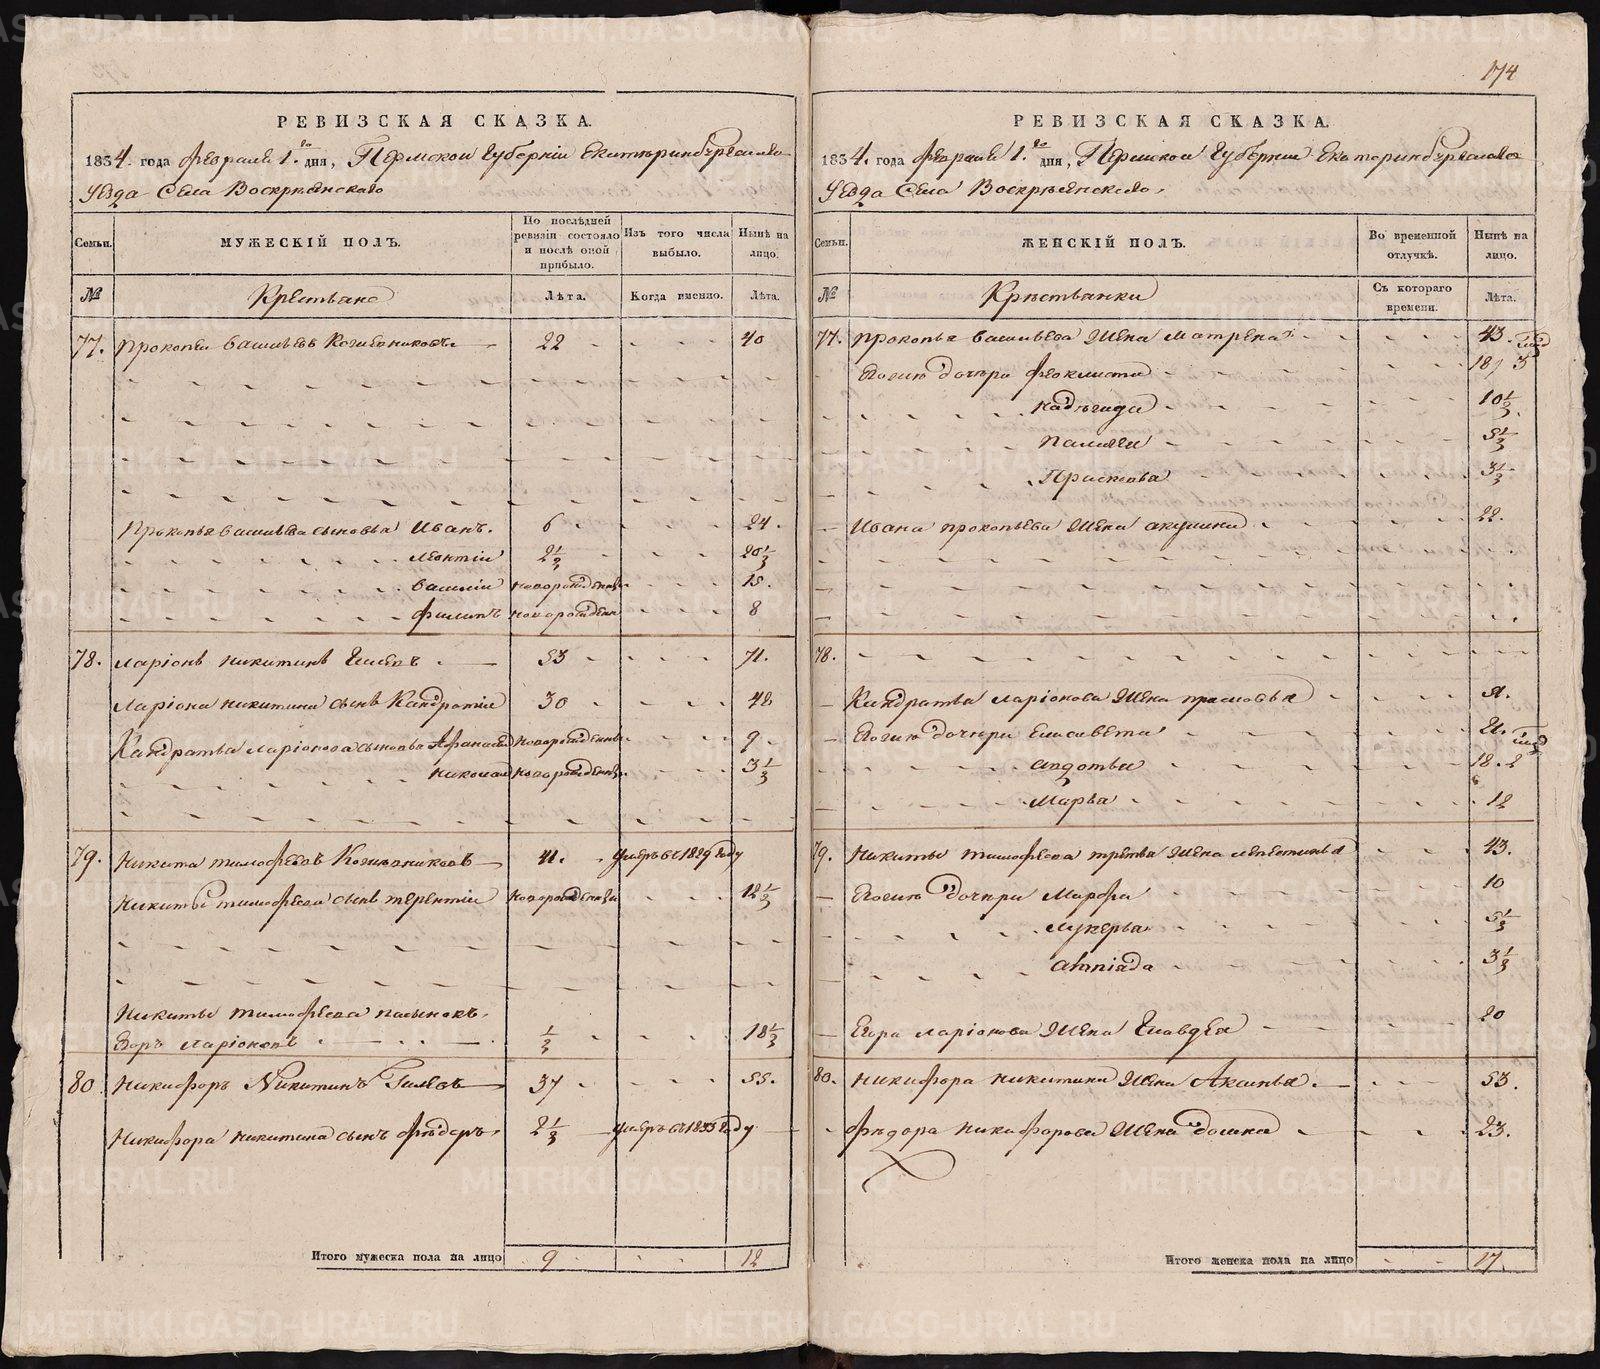 174
РЕВИЗСКАЯ СКАЗКА.
1834. года февраля 1.го дня, Пермской Губернiи Екатеринбургскаго
Уезда Села Воскресенскаго
Семьи.
МУЖЕСКIЙ ПОЛЪ.
По послѣдней ревизiи состояло и послѣ оной прибыло.
Изъ того числа выбыло.
Нынѣ на лицо.
№
Крестьяне
Лѣта.
Когда именно.
Лѣта.
77. Прокопеи Васильевъ 22 40
Прокопья Васильева сыновья Иванъ. 6 24.
Леонтiи 2 1/2 20 1/2
Василiи новорожденны 15.
Филипъ новорожден 8
78. Ларiонъ Никитинъ 53 71.
Ларiона Никитина сынъ Кандратiи 30 48
Кандратья Ларiонова сыновья Афанасеи новорожденны 9
Николаи новорожденны 3 1/2
79. Никита Тимофеевъ 41. умеръ въ 1829 году
Никиты Тимофеева сынъ Терентiи новорожденны 12 1/2
Никиты Тимофеева пасынокъ.
Егоръ Ларiоновъ 1/2 18 1/2
80. Никифоръ Никитинъ 37 55.
Никифора Никитина сынъ Фѣдоръ. 2 1/2 умеръ въ 1833 году
Итого мужеска пола на лицо 9 12
РЕВИЗСКАЯ СКАЗКА.
1834. года февраля 1.го дня, Пермской Губернiи Екатеринбургскаго
Уезда Села Воскресенскаго.
Семьи.
ЖЕНСКIЙ ПОЛЪ.
Во временной отлучкѣ.
Нынѣ на лицо.
№
Крѣстьянки
Съ котораго времени.
Лѣта.
77. Прокопья Васильева жена Матрена 43.
Ево дочери Феклиста 18
Надѣгида 10 1/2
Палагеи 5 1/2
Прасковья 3 1/2
Ивана Прокопьева жена Акулина 22.
78.
Кандратья Ларiонова жена Прасковья
Ево дочери Елисавета
Авдотья 18.
Марья 12
79. Никиты Тимофеева третья жена 43.
Ево дочери Марфа 10
Лукерья 5 1/2
3 1/2
Егора Ларiонова жена Клавдея 20
80. Никифора Никитина жена Аксинья. 53.
Фѣдора Никифорова жена Домна 23.
Итого женска пола на лицо 17.
METRIKI.GASO-URAL.RU